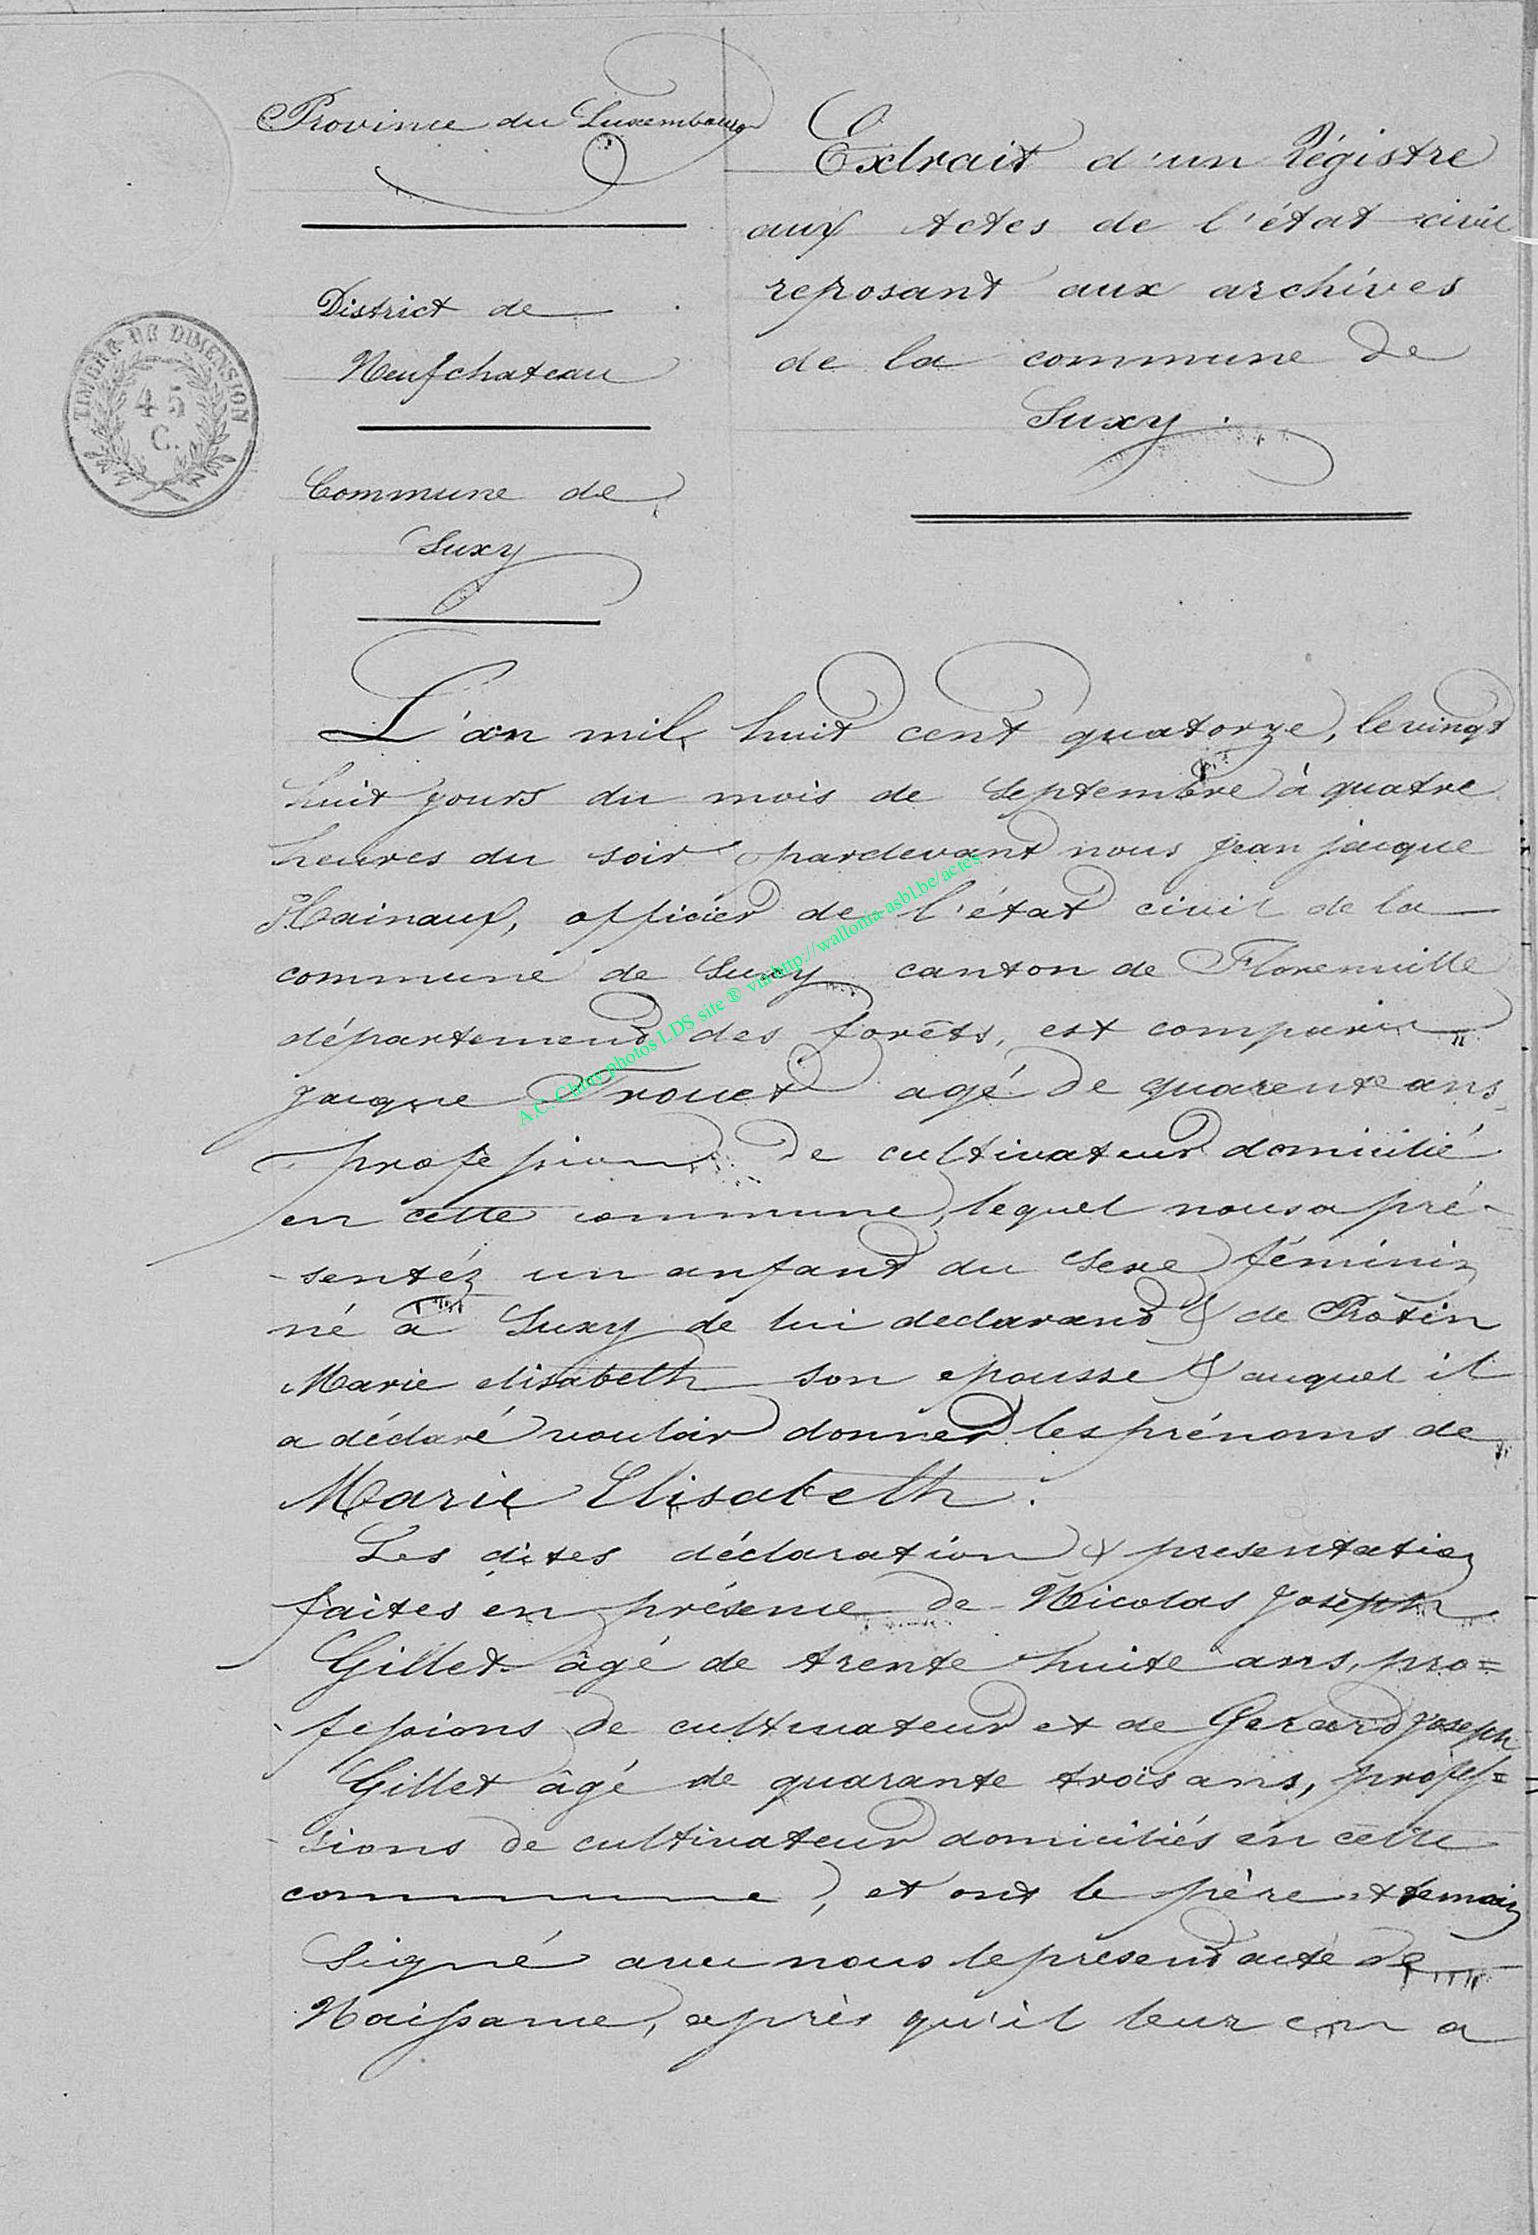 Province du Luxembourg
District de
Neufchateau
Commune de
Suxy
TIMBRE DE DIMENSION
45
C.
Extrait d'un Régistre
aux Actes de l'état civil
reposant aux archives
de la commune de
Suxy.
L'an mil huit cent quatorze, le vingt
huit jours du mois de Septembre à quatre
heures du soir pardevant nous Jean jacque
Hainaux, officier de l'état civil de la
commune de Suxy canton de Florenville
département des forêts, est comparu
Jacque Trouet agé de quarente ans
profession de cultivateur domicilié
en cette commune, lequel nous a pré-
-sentéz un anfant du Sexe féminin
né à Suxy de lui declarant & de Rotin
Marie elisabeth son epousse & auquel il
a déclaré vouloir donner les prénoms de
Marie Elisabeth.
Les dites déclaration & presentation
faites en présence de Nicolas Joseph
Gillet âgé de trente huite ans, pro=
fessions de cultivateur et de Gerard Joseph
Gillet âgé de quarante trois ans, profes=
sions de cultivateur domiciliés en cette
commune, et ont le père & temoin
Signé avec nous le présent acte de
Naissance, après qu'il leur en a
A.C. Chiny photos LDS site ® via http://wallonia-asbl.be/actes